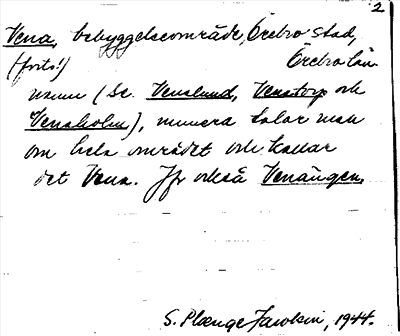 2
Vena, bebyggelseområde, Örebro stad,
(forts!) Örebro län
namn (se. Venalund, Venatorp och
Venaholm), numera talar man
om hela området och kallar
det Vena. Jfr också Venaängen.
S. Plænge Jacobson, 1944.